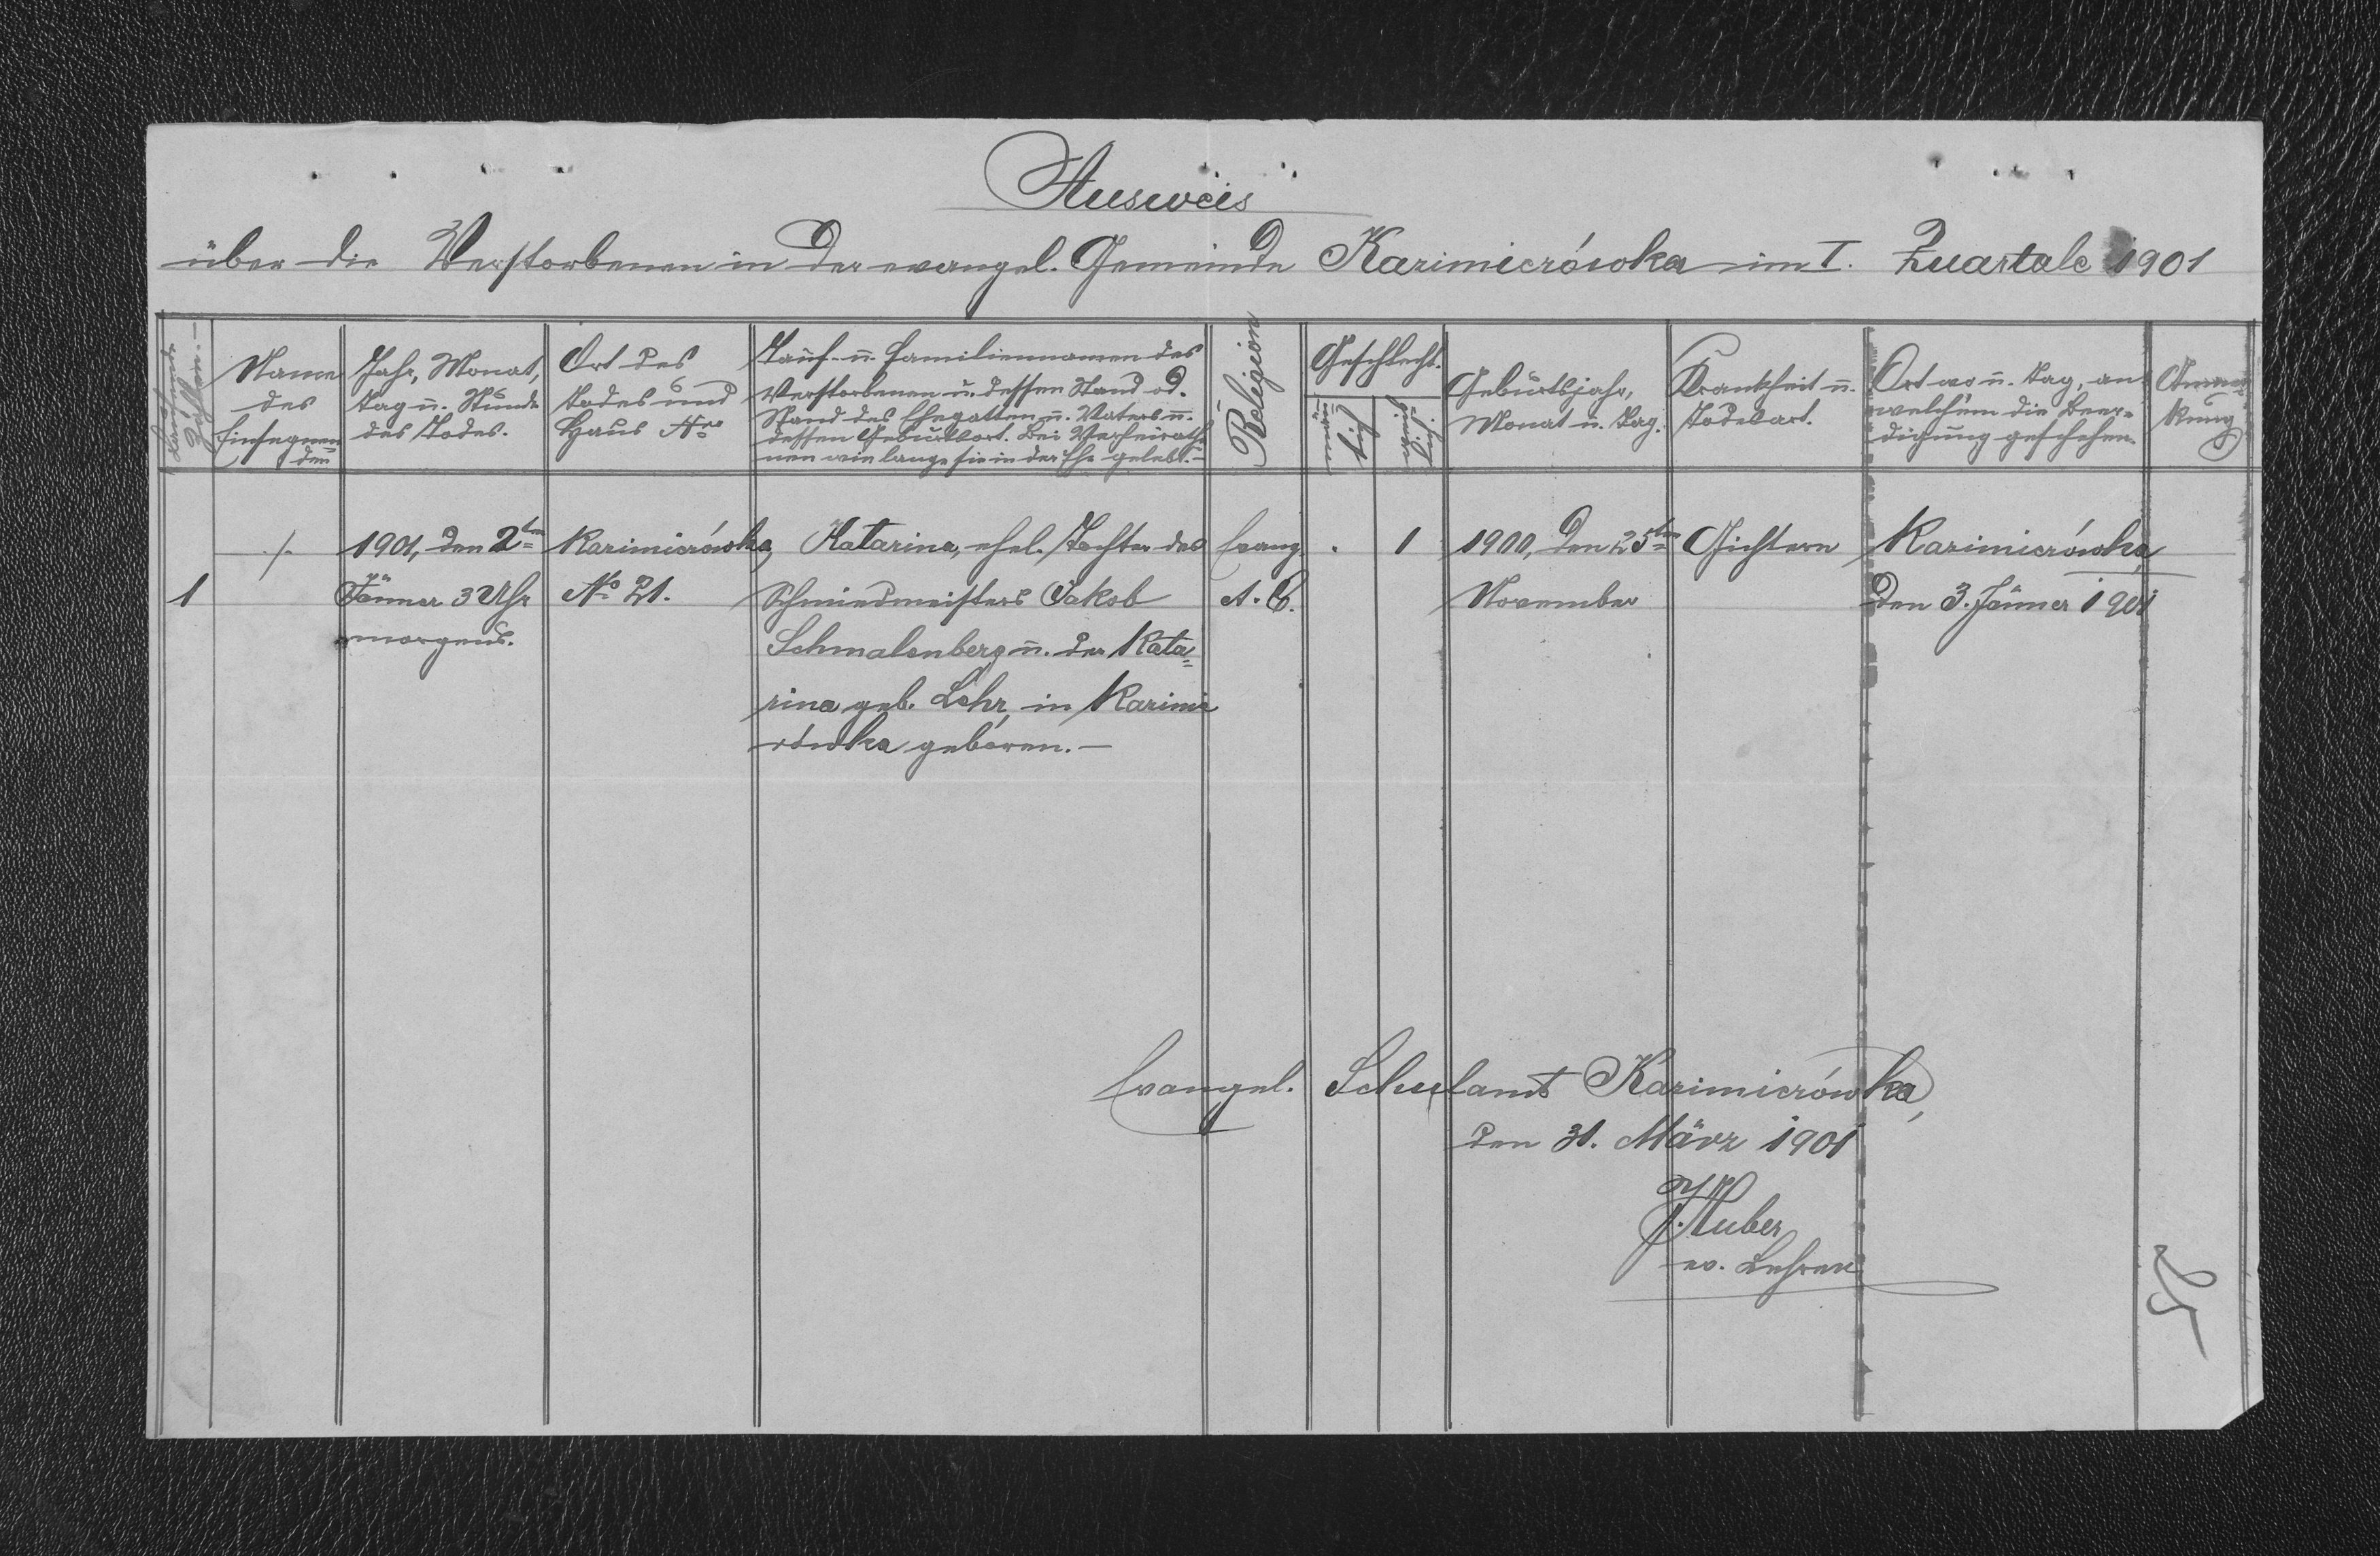 Ausweis
über die Verstorbenen in der evangel. Gemeinde Kazimierówka im I. Quartale 1901
Laufende Zahlen.
Name
des
Einsegnen
den
Jahr, Monat,
Tag u. Stunde
des Todes.
Ort des
Todes und
Haus Nro
Tauf- u. Familiennamen des
Verstorbenen u. dessen Stand od.
Stand des Ehegatten u. Vaters u.
dessen Geburtsort. Bei Verheirath
nen wie lange sie in der Ehe gelebt.-
Religion
Geschlecht.
männ
lich
weib
lich
Geburtsjahr,
Monat u. Tag.
Krankheit u.
Todesart.
Ort wo u. Tag, an
welchem die Beer=
digung geschehen.
Anmer
kung
1
./.
1901, den 2ten
Jänner 3 Uhr
morgens.
Kazimierówka,
No 21.
Katarina, ehel. Tochter des
Schmiedmeisters Jakob
Schmalenberg u. der Kata=
rina geb. Lohr, in Kazimie
rówka geboren.—
Evang.
A. C.
.
1
1900, den 25ten
November
Gichtern
Kazimierówka,
den 3. Jänner 1901
Evangel. Schulamt Kazimierówka,
den 31. März 1901
J. Huber
ev. Lehrer